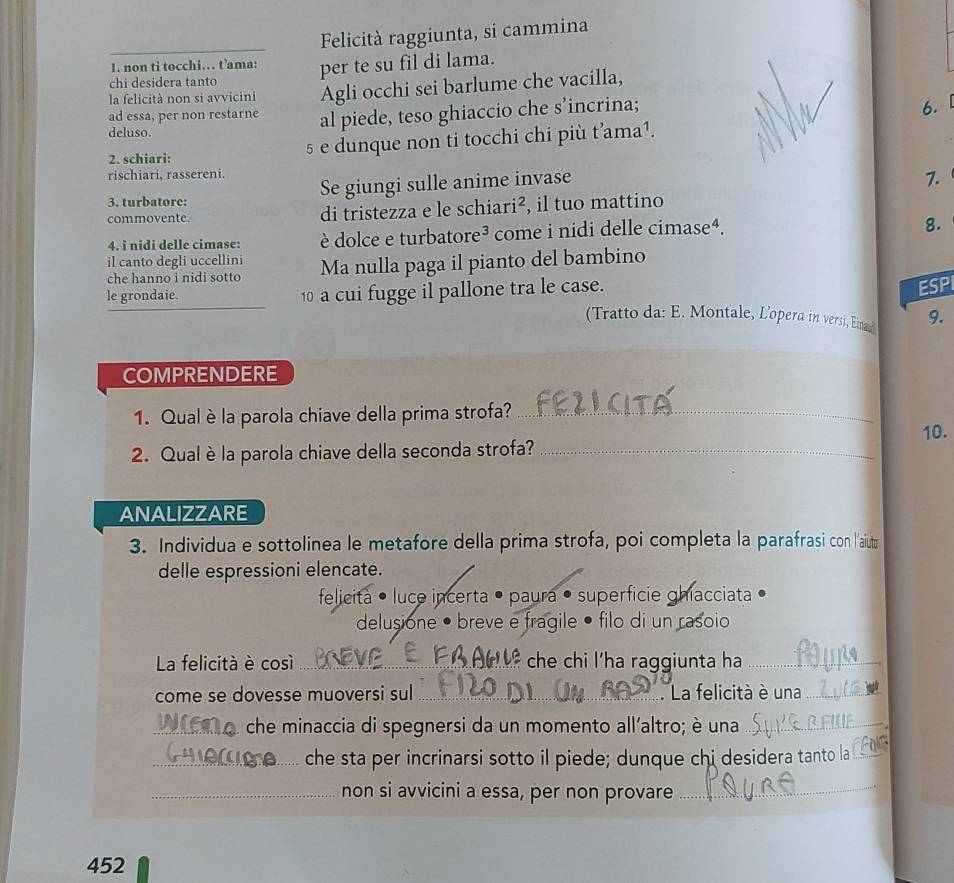 Felicità raggiunta, si cammina
per te su fil di lama.
Agli occhi sei barlume che vacilla,
al piede, teso ghiaccio che s'incrina;
5 e dunque non ti tocchi chi più t'ama¹.
Se giungi sulle anime invase
di tristezza e le schiari², il tuo mattino
è dolce e turbatore³ come i nidi delle cimase⁴.
Ma nulla paga il pianto del bambino
10 a cui fugge il pallone tra le case.
(Tratto da: E. Montale, L'opera in versi, Einaudi
1. non ti tocchi... t'ama:
chi desidera tanto
la felicità non si avvicini
ad essa, per non restarne
deluso.
2. schiari:
rischiari, rassereni.
3. turbatore:
commovente.
4. i nidi delle cimase:
il canto degli uccellini
che hanno i nidi sotto
le grondaie.
COMPRENDERE
1. Qual è la parola chiave della prima strofa? FELICITÁ
2. Qual è la parola chiave della seconda strofa?
ANALIZZARE
3. Individua e sottolinea le metafore della prima strofa, poi completa la parafrasi con l'aiuto
delle espressioni elencate.
felicità • luce incerta • paura • superficie ghiacciata •
delusione • breve e fragile • filo di un rasoio
La felicità è così BREVE E FRAGILE che chi l'ha raggiunta ha PAURA
come se dovesse muoversi sul FILO DI UN RASOIO. La felicità è una LUCE
INCERTA che minaccia di spegnersi da un momento all'altro; è una SUPERFICIE
GHIACCIATA che sta per incrinarsi sotto il piede; dunque chi desidera tanto la
non si avvicini a essa, per non provare PAURA
452
6.
7.
8.
ESP
9.
10.